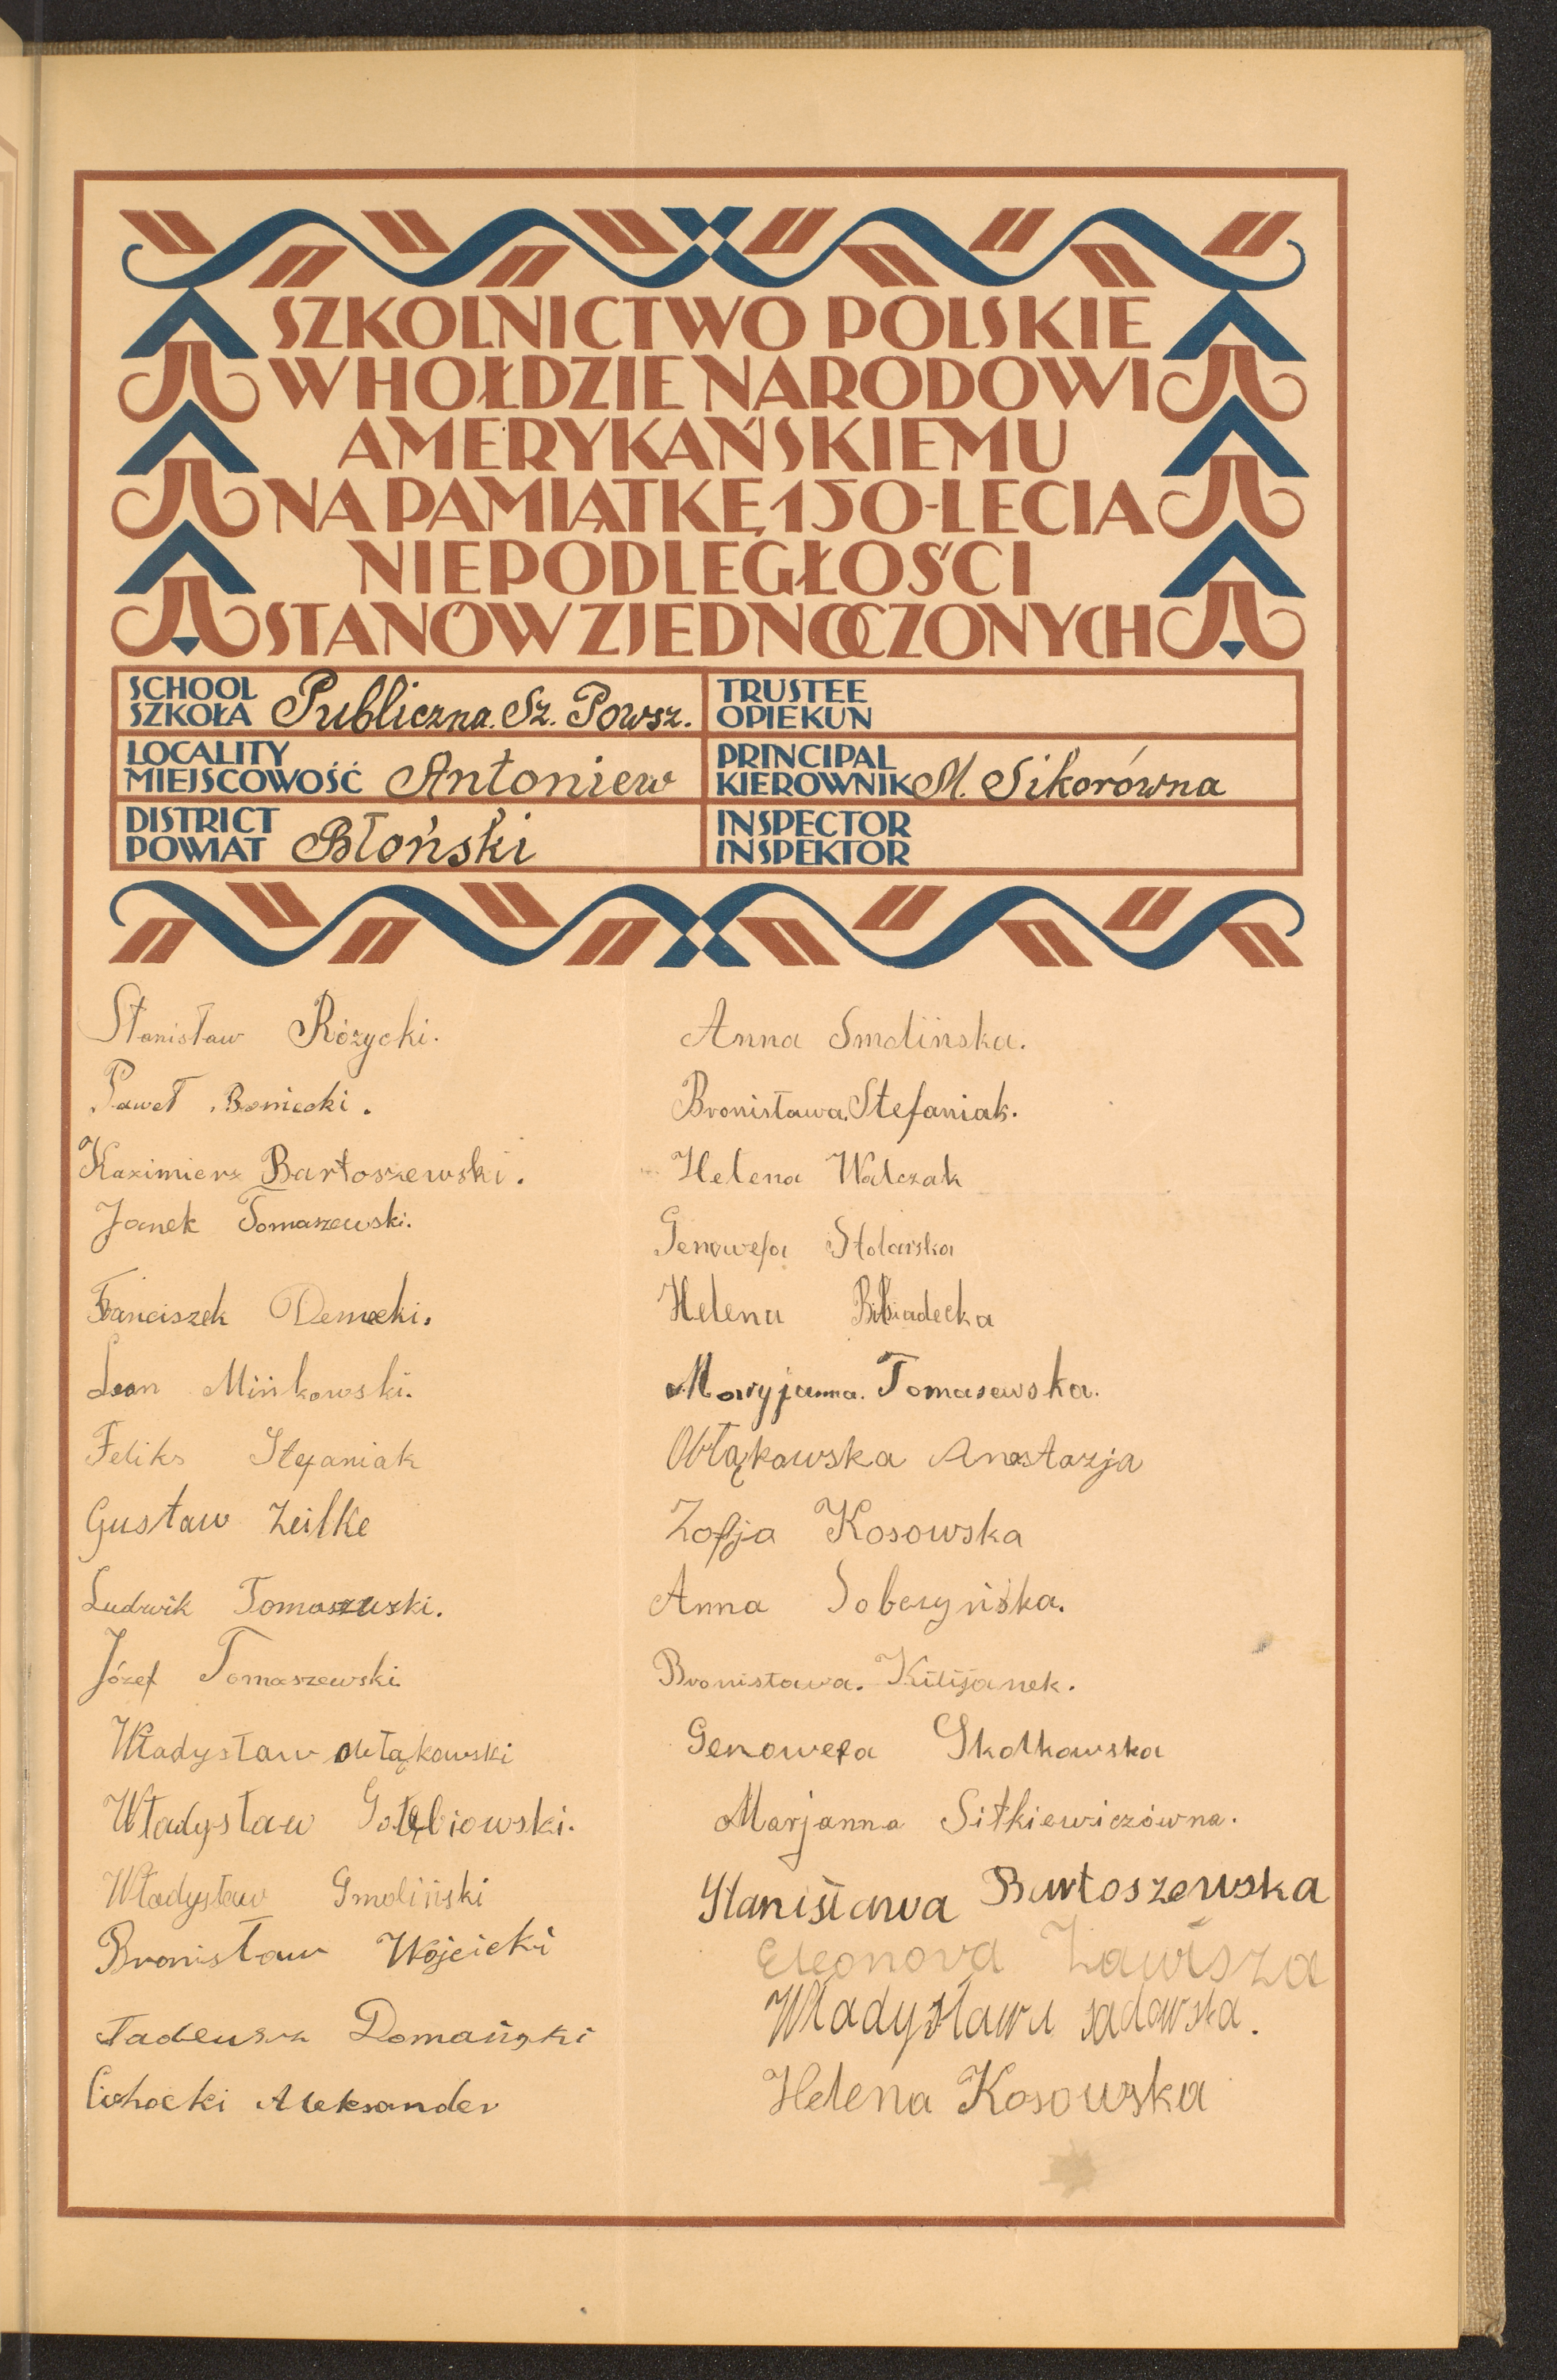 SZKOLNICTWO POLSKIE
W HOŁDZIE NARODOWI
AMERYKAŃSKIEMU
NA PAMIĄTKĘ 150-LECIA
NIEPODLEGŁOŚCI
STANÓW ZJEDNOCZONYCH
SCHOOL
SZKOŁA Publiczna. Sz. Powsz.
TRUSTEE
OPIEKUN
LOCALITY
MIEJSCOWOŚĆ Antoniew
PRINCIPAL
KIEROWNIK M. Sikorówna
DISTRICT
POWIAT Błoński
INSPECTOR
INSPEKTOR
Stanisław Różycki.
Paweł Boniecki.
Kazimierz Bartoszewski.
Janek Tomaszewski.
Franciszek Demecki.
Leon Mińkowski.
Feliks Stefaniak
Gustaw Zeilke
Ludwik Tomaszeuski.
Józef Tomaszewski.
Władysław Obłąkowski
Władysław Gołębiowski.
Władysław Smoliński
Bronisław Wojcicki
Tadeusz Domański
Cichocki Aleksander
Anna Smolińska.
Bronisława Stefaniak.
Helena Walczak
Genowefa Stolarska
Helena
Maryjanna. Tomasewska.
Obłąkowska Anastazja
Zofja Kosowska
Anna Sobczyńska.
Bronisława. Kilijanek.
Genowefa Skolkowska
Marjanna Sitkiewiczówna.
Stanisława Bartoszewska
Eleonora Zawisza
Władysława sadowska.
Helena Kosowska